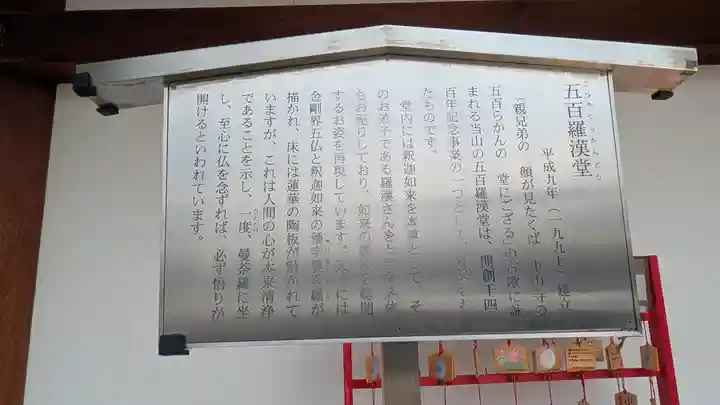 五百羅漢堂
ごひゃくらかんどう
平成九年（一九九七）建立
「親兄弟の 顔が見たくば 寺の
五百らかんの 堂にござる」の古歌に詠
まれる当山の五百羅漢堂は、開創千四
百年記念事業の一つとして、
たものです。
堂内には釈迦如来を本尊として、そ
のお弟子である羅漢さんを
お祀りしており、如来の 聴聞
するお姿を再現しています。 には
金剛界五仏と釈迦如来の 羅が
描かれ、床には蓮華の陶板が れて
いますが、これは人間の心が本来清浄
であることを示し、一度、曼荼羅に坐
し、至心に仏を念ずれば、必ず悟りが
開けるといわれています。